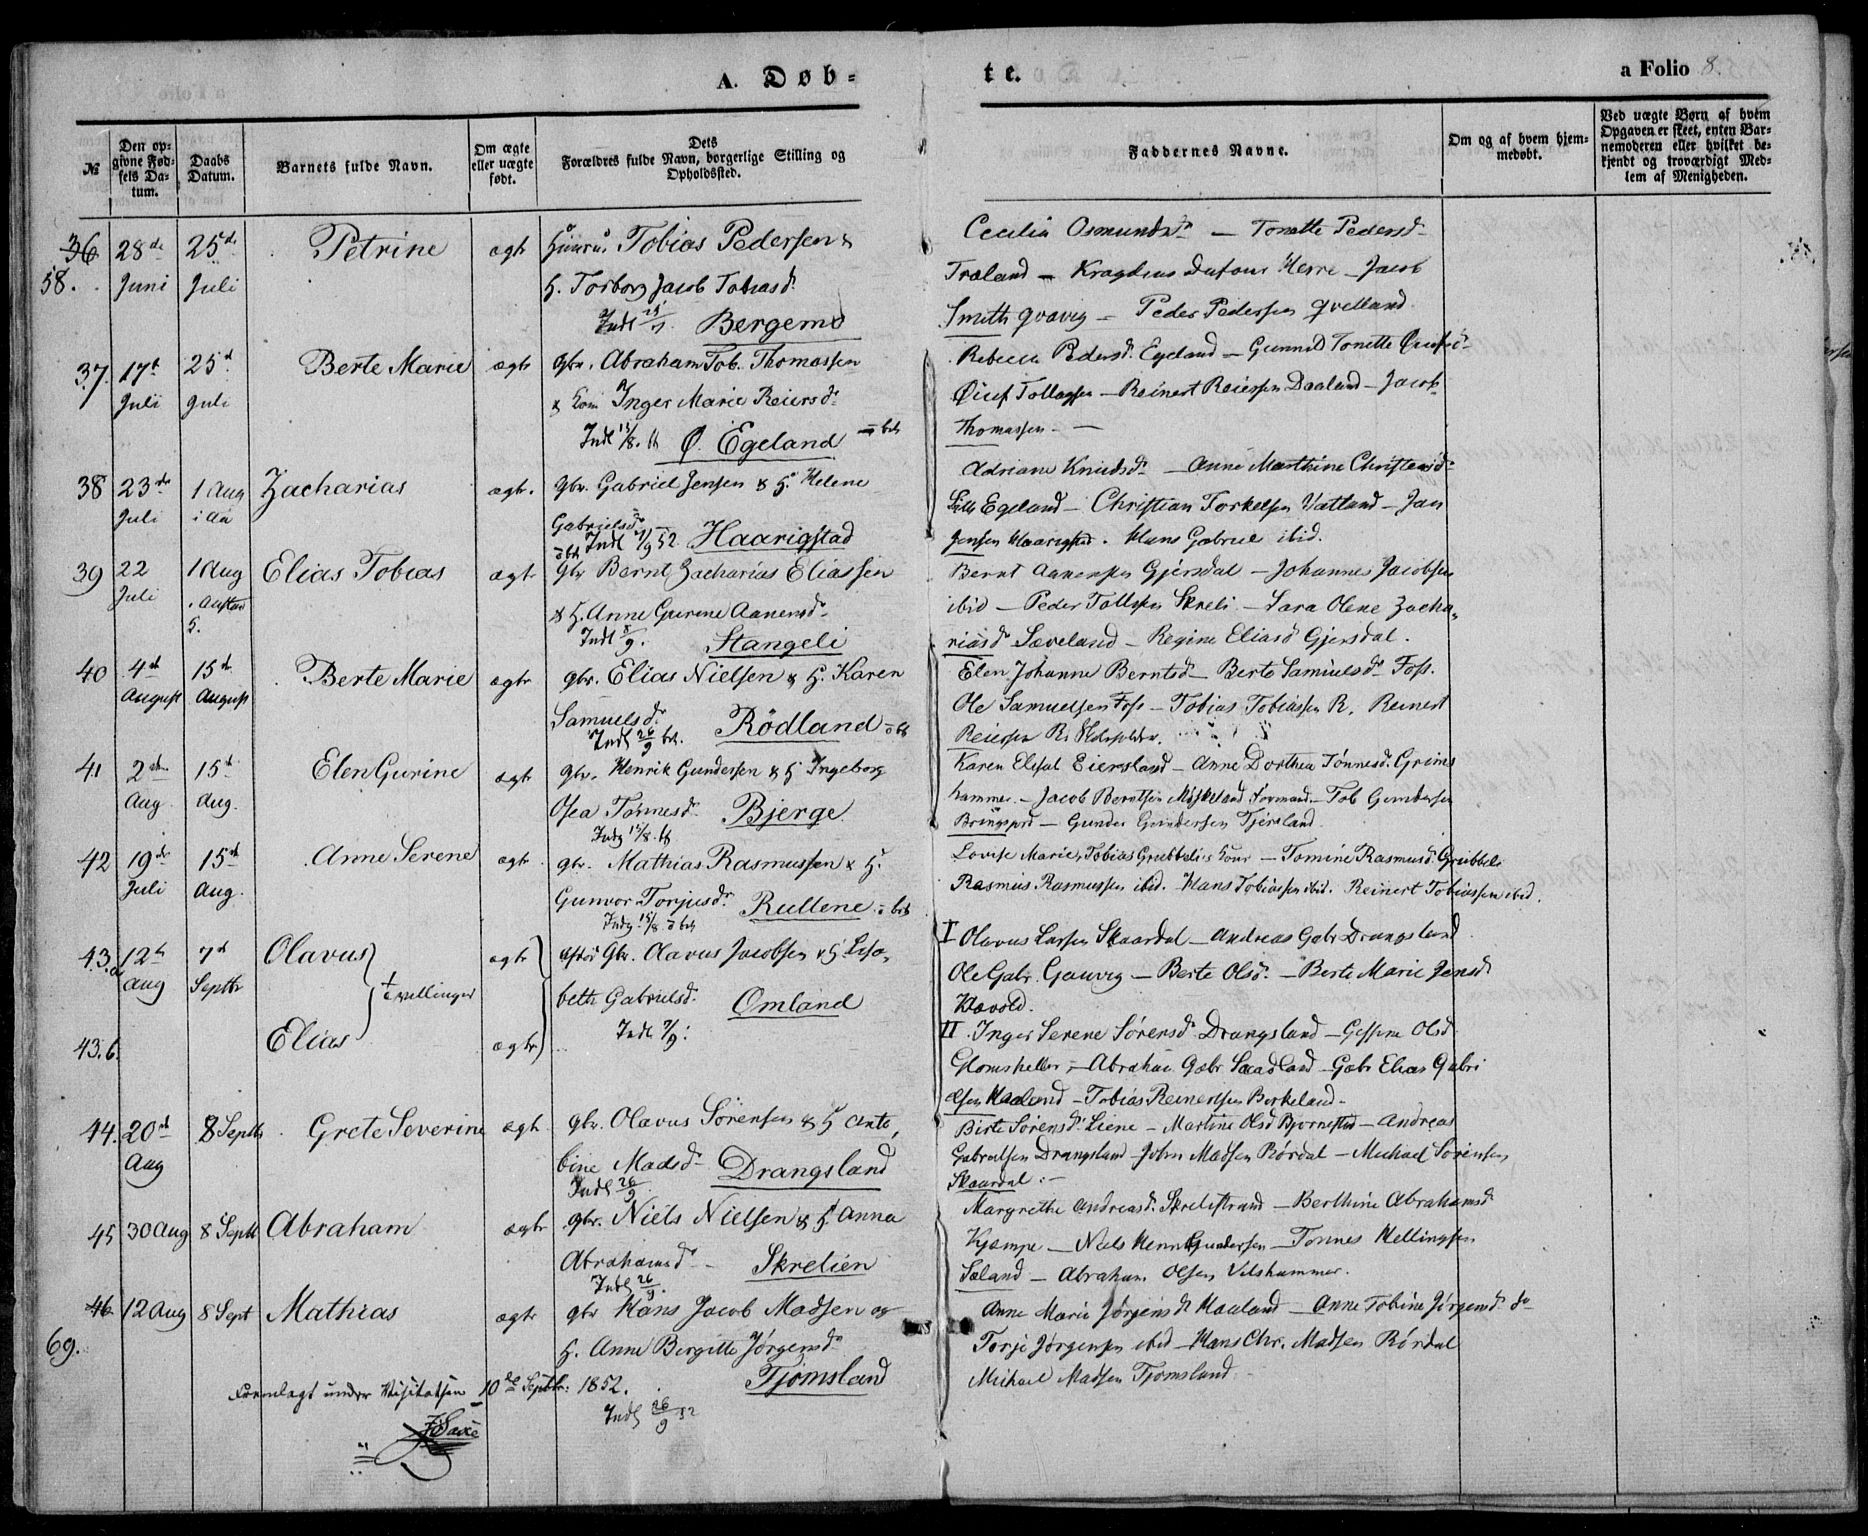 A. Døb-
te.
a Folio 8.
№
Den op-
givne Fød-
sels Da-
tum.
Daabs
Datum.
Barnets fulde Navn.
Om ægte
eller uægte
født.
Dets
Forældres fulde Navn, borgerlige Stilling og
Opholdssted.
Faddernes Navne.
Om og af hvem hjem-
medøbt.
Ved uægte Børn af hvem
Opgaven er skeet, enten Bar-
nemoderen eller hvilket be-
kjendt og troværdigt Med-
lem af Menigheden.
36 28de 25de Petrine ægte Tobias Pedersen &
58. Juni Juli H. Torborg Jacob Tobiasd.
Indl 25/7. Bergemo
Cecilia Osmundsd. — Tonette Pedersd.
Træland — Herre — Jacob
Smith Qvavig — Peder Pedersen Qvelland.
37. 17d 25d Berte Marie ægte Gbr. Abraham Tob. Thomassen
Juli Juli & Kone Inger Marie Reiersd.
Indl 15/8. Ø. Egeland
Rebecca Pedersd. Egeland — Gunnild Tonette
Tollagsen — Reinert Reiersen Daaland — Jacob
Thomassen. —
38 23de 1 Aug Zacharias ægte. Gbr. Gabriel Jensen & H. Helene
Juli i Aa Gabrielsd.
Indl 7/9 52. Haarigstad
Adriane Knudsd. — Anne Marthine Christensd.
Lille Egeland — Christian Torkelsen Vatland — Jan
Jensen Haarigstad. Hans Gabriel ibid.
39 22 1 Aug Elias Tobias ægte Gbr Bernt Zacharias Eliassen
Juli & H. Anne Gurine Aanensd.
Indl 8/9. Stangeli
Bernt Aanensen Gjersdal — Johannes Jacobsen
ibid — Peder Tollefsen Skreli — Sara Olene Zacha-
riasd. Sæveland — Regine Eliasd Gjersdal.
40 4de 15de Berte Marie ægte Gbr. Elias Nielsen & H. Karen
August August Samuelsd.
Indl 26/9 Rödland
Elen Johanne Berntsd — Berte Samuelsd. Foss.
Ole Samuelsen Foss — Tobias Tobiassen R. Reinert
Reiersen R.
41 2den 15de Elen Gurine ægte Gbr. Henrik Gundersen & H Ingeborg
Aug. Aug. Osea Tønnesd.
Indl 15/8. Bjerge.
Karen Elisab Eiersland — Anne Dorthea Tønnesd. Grims
hammer. — Jacob Berntsen — Tob Gundersen
Bringsjord — Gunder Gundersen Tjörsland.
42 19de 15de Anne Serene ægte gbr. Mathias Rasmussen & H.
Juli Aug. Gunvor Torjusd.
Indl 15/8 Rullene
Lovise Marie, Tobias Grubbelis Kone — Tomine Rasmusd. Grubbeli
Rasmus Rasmussen ibid. Hans Tobiassen ibid. Reinert Tobiassen ibid.
43.a 12te 7de Olavus } tvillinger ægte Gbr. Olavus Jacobsen & H Lisa-
Aug Septbr beth Gabrielsd. Omland
Indl 7/9.
I Olavus Larsen Skaardal — Andreas Gabr Drangsland.
Ole Gabr. Gauvig — Berte Olsd. — Berte Marie Jensd
Hævold.
43.b. Elias ægte
II. Inger Serene Sørensd. Drangsland — Gessine Olsd.
— Abraham Gabr — Gabr Elias Gabri
elsen Haaland — Tobias Reinertsen Birkeland —
44. 20de 8 Septbr Grete Severine ægte gbr. Olavus Sörensen & H Anto-
Aug bine Madsd. Drangsland
Indl 26/9.
Birte Sörensd. Liene — Martine Olsd Bjornestad — Andreas
Gabrielsen Drangsland — John Madsen Rørdal — Michael Sörensen
Skaardal. —
45 30 Aug 8 Septb Abraham ægte gbr. Niels Nielsen & H. Anna
Abrahamsd. Skrelien
Indl 26/9.
Margrethe Andreasd. Skrelistrand — Berthine Abrahamsd
Kjæmpe — Niels Henr Gundersen — Tønnes Hellingsen
Sæland — Abraham Olsen Vilshammer.
46 12 Aug 8 Sept Mathias ægte gbr Hans Jacob Madsen og
69. H. Anne Birgitte Jörgensd.
Tjomsland
Anne Marie Jörgensd. Haaland — Anne Tobine Jörgensd. do
Torje Jørgensen ibid — Hans Chr. Madsen Rördal
Michael Madsen Tjomsland.
Fremlagt under Visitatsen 10de Septbr: 1852.
Indl 26/9 52